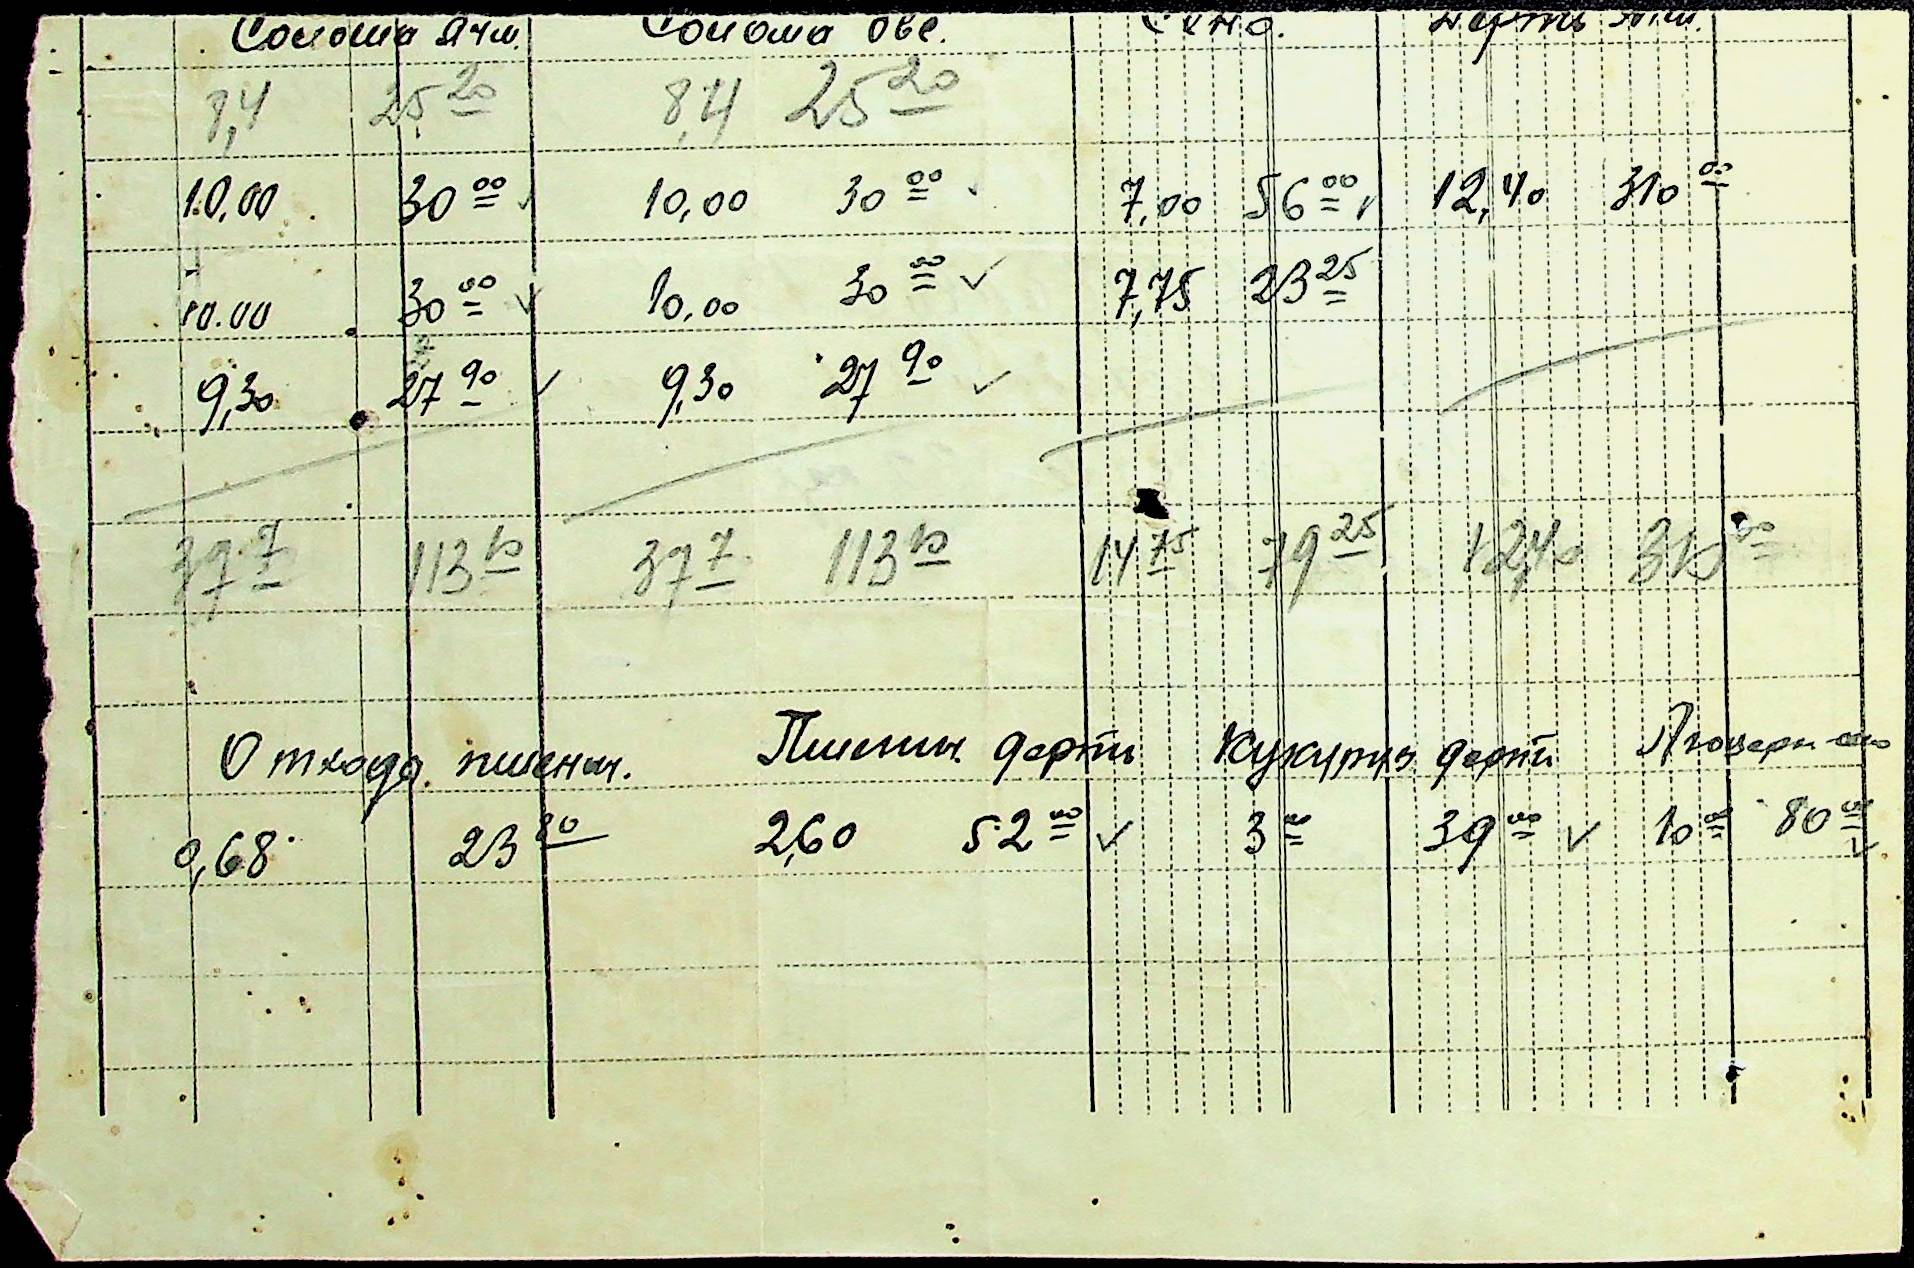 Солома Ячм. Солома Овс. Сено. Дерть ячм.
8,4 25 20 8,4 25 20
10,00 30 00 ✓ 10,00 30 00 7,00 56 00 ✓ 12,40 310 00
10.00 30 00 ✓ 10,00 30 00 ✓ 7,75 23 25
9,30 27 90 ✓ 9,30 27 90 ✓
37 7 113 10 37 7 113 10 14 75 79 25 12,40 310 00
Отхода пшенич. Пшенич. дерть Кукуруз дерти Люцерн
0,68 23 80 2,60 52 00 ✓ 3 00 39 00 ✓ 10 00 80 00 ✓